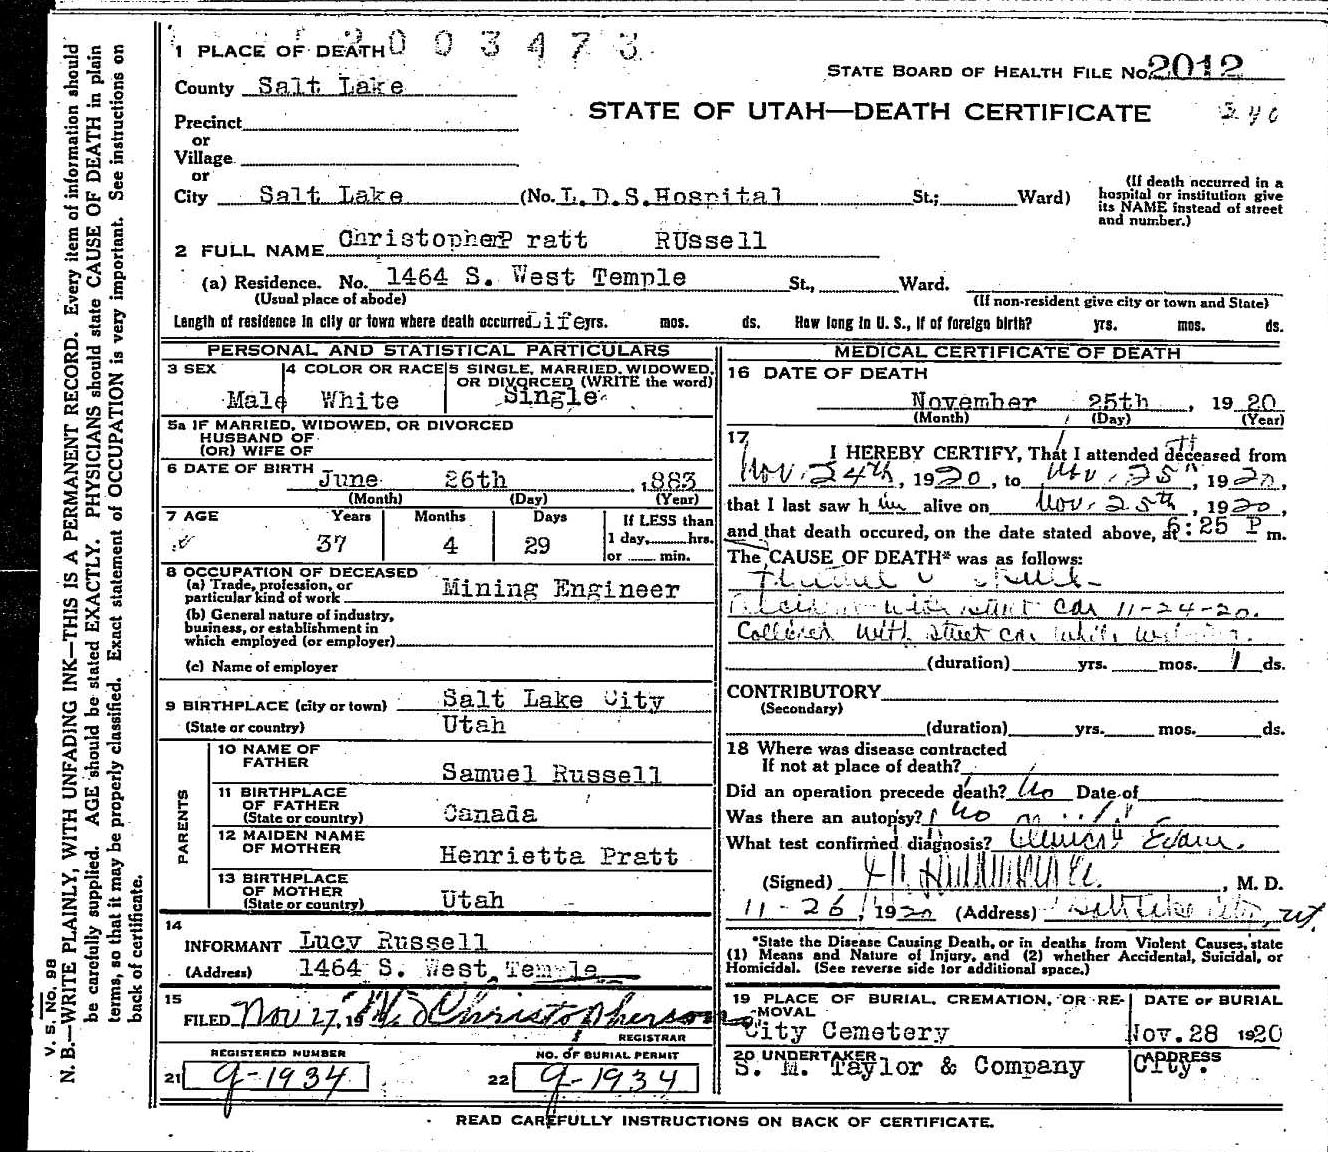 V. S. No. 98
N. B.—WRITE PLAINLY, WITH UNFADING INK—THIS IS A PERMANENT RECORD. Every item of information should
be carefully supplied. AGE should be stated EXACTLY. PHYSICIANS should state CAUSE OF DEATH in plain
terms, so that it may be properly classified. Exact statement of OCCUPATION is very important. See instructions on
back of certificate.
2003473
1 PLACE OF DEATH
STATE BOARD OF HEALTH FILE No. 2012
County Salt Lake
STATE OF UTAH—DEATH CERTIFICATE
340
Precinct
or
Village
or
City Salt Lake (No. L.D.S.Hospital St.; Ward)
(If death occurred in a
hospital or institution give
its NAME instead of street
and number.)
2 FULL NAME ChristopherP ratt RUssell
(a) Residence. No. 1464 S. West Temple St., Ward.
(Usual place of abode) (If non-resident give city or town and State)
Length of residence in city or town where death occurred Life yrs. mos. ds. How long in U. S., if of foreign birth? yrs. mos. ds.
PERSONAL AND STATISTICAL PARTICULARS
3 SEX Male
4 COLOR OR RACE White
5 SINGLE, MARRIED, WIDOWED,
OR DIVORCED (WRITE the word)
Single
5a IF MARRIED, WIDOWED, OR DIVORCED
HUSBAND OF
(OR) WIFE OF
6 DATE OF BIRTH June 26th , 883
(Month) (Day) (Year)
7 AGE Years Months Days If LESS than
1 day, hrs.
or min.
37 4 29
8 OCCUPATION OF DECEASED
(a) Trade, profession, or
particular kind of work Mining Engineer
(b) General nature of industry,
business, or establishment in
which employed (or employer)
(c) Name of employer
9 BIRTHPLACE (city or town) Salt Lake City
(State or country) Utah
PARENTS
10 NAME OF
FATHER Samuel Russell
11 BIRTHPLACE
OF FATHER
(State or country) Canada
12 MAIDEN NAME
OF MOTHER Henrietta Pratt
13 BIRTHPLACE
OF MOTHER
(State or country) Utah
14
INFORMANT Lucy Russell
(Address) 1464 S. West Temple
15
FILED Nov 27, 19 Christopherson
REGISTRAR
REGISTERED NUMBER NO. OF BURIAL PERMIT
21 9-1934 22 9-1934
MEDICAL CERTIFICATE OF DEATH
16 DATE OF DEATH
November 25th , 19 20
(Month) (Day) (Year)
17
I HEREBY CERTIFY, That I attended deceased from
Nov. 24th, 1920, to Nov. 25th, 1920,
that I last saw him alive on Nov. 25th, 1920,
and that death occured, on the date stated above, at 6:25 P m.
The CAUSE OF DEATH* was as follows:
with street car 11-24-20.
Collided with street car while
(duration) yrs. mos. 1 ds.
CONTRIBUTORY
(Secondary)
(duration) yrs. mos. ds.
18 Where was disease contracted
If not at place of death?
Did an operation precede death? No Date of
Was there an autopsy? No
What test confirmed diagnosis? Clinical Exam.
(Signed) , M. D.
11-26, 1920 (Address) Salt Lake City, Ut.
*State the Disease Causing Death, or in deaths from Violent Causes, state
(1) Means and Nature of Injury, and (2) whether Accidental, Suicidal, or
Homicidal. (See reverse side for additional space.)
19 PLACE OF BURIAL, CREMATION, OR RE-
MOVAL
City Cemetery
DATE OF BURIAL
Nov. 28 1920
20 UNDERTAKER
S. M. Taylor & Company
ADDRESS
City.
READ CAREFULLY INSTRUCTIONS ON BACK OF CERTIFICATE.